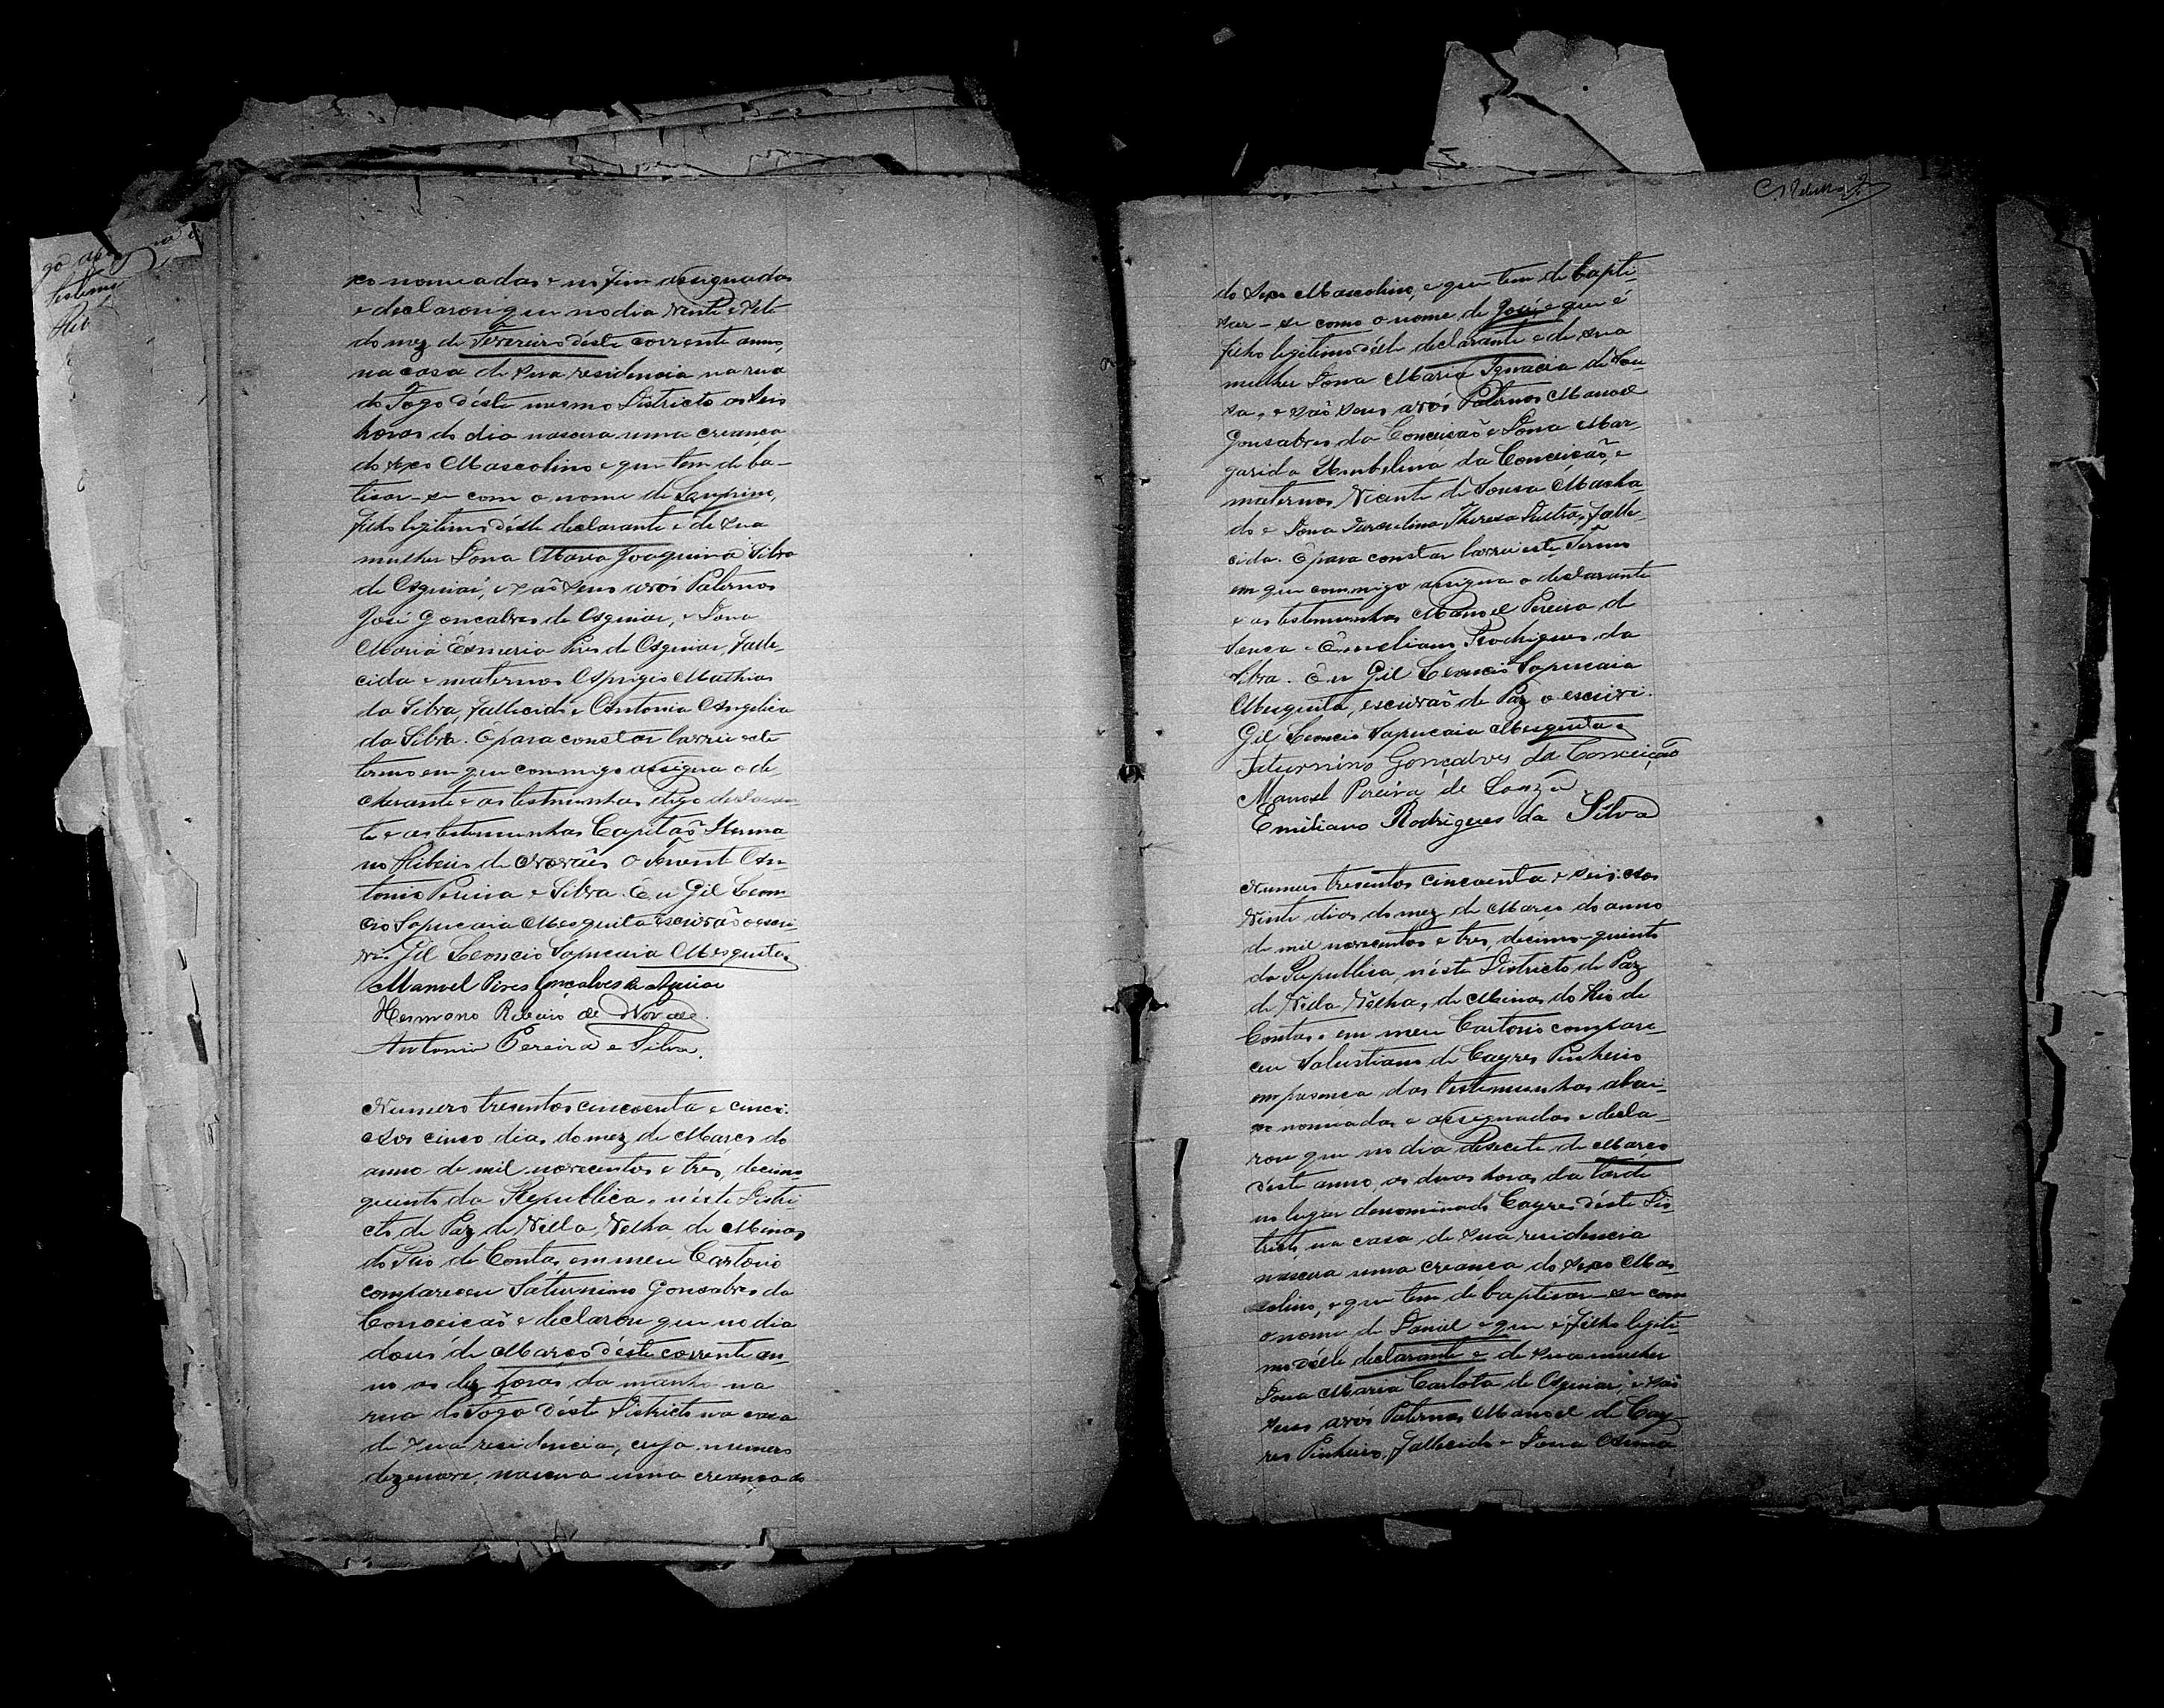 xo nomeadas e no fim assignadas
e declarou que no dia Vinte e Sete
do mez de Fevereiro déste corrente anno,
na casa de sua residencia na rua
do Fogo déste mesmo Districto as seis
horas do dia nascera uma creança
do sexo Mascolino e que tem de ba-
tisar-se com o nome de
filho legitimo déste declarante e de sua
mulher Dona Maria Joaquina Silva
de Aguiar, e são seus avós Paternos
José Goncalves de Aguiar, e Dona
Maria Esmeria Pires de Aguiar, falle-
cida e maternos Aprigio Mathias
da Silva, fallecido e Antonia Angelica
da Silva. E para constar lavrei este
termo em que commigo assigna o de-
clarante e as testmunhas digo declaran-
te e as testemunhas Capitão Herma
no Ribeiro de Novaes o Tenente An-
tonio Pereira e Silva. Eu Gil Leon-
cio Sapucaia Mesquita escrivão o escre
vi. Gil Leoncio Sapucaia Mesquita.
Manoel Pires Gonçalves de Aguiar
Hermano Ribeiro de Novaes.
Antonio Pereira e Silva.
Numero tresentos cincoenta e cinco.
Aos cinco dias do mez de Março do
anno de mil novecentos e três, decimo
quinto da Republica, néste Distri-
cto de Paz de Villa Velha de Minas
do Rio de Contas, em meu Cartorio
compareceu Saturnino Gonsalves da
Conceicão e declarou que no dia
dous de Março déste corrente an-
no as dez horas da manhã na
rua do Fogo déste Districto na casa
de sua residencia, cujo numero
dezenove, nascera uma creança do
do sexo Mascolino, e que tem de bapti-
sar-se como o nome de José, e que é
filho legitimo déste declarante e de sua
mulher Dona Maria Ignacia de Sou-
sa, e são seus avós Paternos Manoel
Gonsalves da Conceisão e Dona Mar-
garida Umbelina da Conceição, e
maternos Vicente de Sousa Macha-
do e Dona Theresa Dultra, falle-
cida. E para constar lavrei este Termo
em que commigo assigna o declarante
e as testemunhas Manoel Pereira de
Souza e Emeliano Rodrigues da
Silva. Eu Gil Leoncio Sapucaia
Mesquita, escrivão de Paz o escrivi.
Gil Leoncio Sapucaia Mesquita.
Saturnino Gonçalves da Conceição
Manoel Pereira de Souza
Emiliano Rodrigues da Silva
Numero tresentos cincoenta e seis. Aos
Vinte dias do mez de Março do anno
de mil novecentos e tres, decimo-quinto
da Republica, néste Districto de Paz
de Villa Velha, de Minas do Rio de
Contas, em meu Cartorio compare-
ceu Salustiano de Cayres Pinheiro
em presença das testemunhas abai-
xo nomeadas e assignadas e decla-
rou que no dia desecete de Março
déste anno, as duas horas da tarde
no lugar denominado Cayres déste Dis-
tricto, na casa de sua residencia
nascera uma creança do sexo Mas-
colino, e que tem de baptisar-se com
o nome de Daniel e que é filho legiti-
mo déste declarante e de sua mulher
Dona Maria Carlota de Aguiar, e são
seus avós Paternos Manoel de Cay-
res Pinheiro, fallecido e Dona Anna